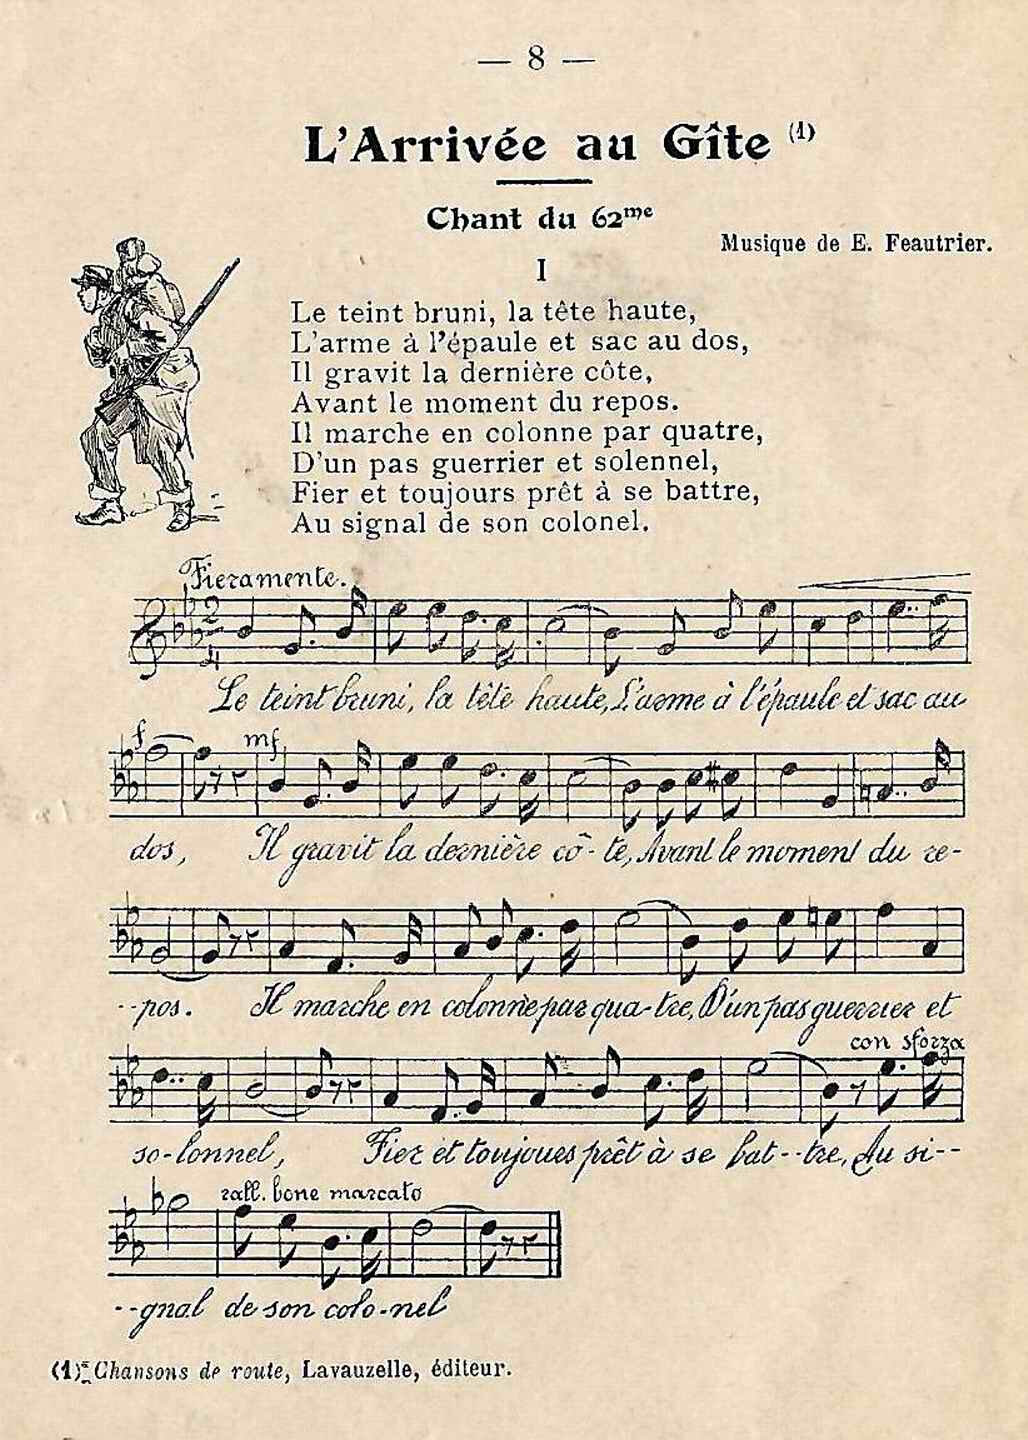 — 8 —
L'Arrivée au Gîte (1)
Chant du 62me
Musique de E. Feautrier.
I
Le teint bruni, la tête haute,
L'arme à l'épaule et sac au dos,
Il gravit la dernière côte,
Avant le moment du repos.
Il marche en colonne par quatre,
D'un pas guerrier et solennel,
Fier et toujours prêt à se battre,
Au signal de son colonel.
Fieramente.
2
4
Le teint bruni, la tête haute, L'arme à l'épaule et sac au
f mf
dos, Il gravit la dernière cô-te, Avant le moment du re-
--pos. Il marche en colonne par qua-tre, D'un pas guerrier et
con sforza
so-lonnel, Fier et toujours prêt à se bat--tre, Au si--
rall. bone marcato
--gnal de son colo-nel
(1) Chansons de route, Lavauzelle, éditeur.